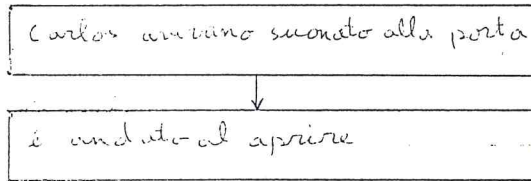 Carlos anvano suonato alla porta
è andato al aprire